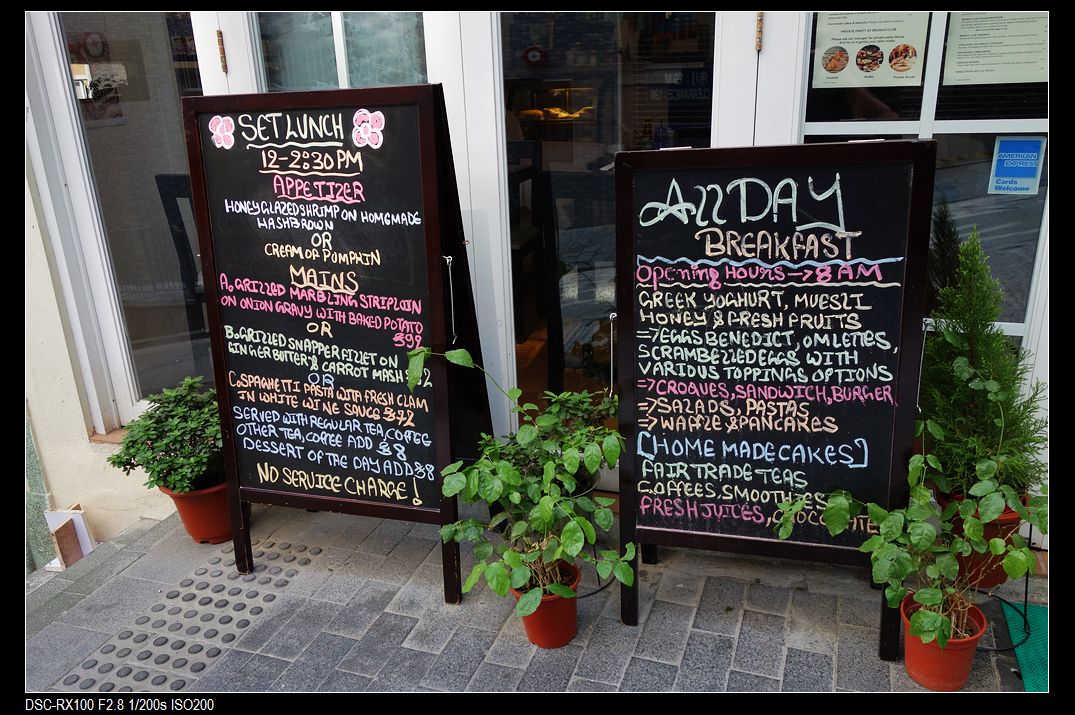 SET LUNCH
12-2:30 PM
APPETIZER
HONEY GLAZED SHRIMP ON HOMGMADE
HASHBROWN
OR
CREAM OF PUMPKIN
MAINS
A. GRILLED MARBLING STRIPLOIN
ON ONION GRAVY WITH BAKED POTATO
$99
OR
B. GRILLED SNAPPER FILLET ON
GINGER BUTTER & CARROT MASH
OR
C. SPAGHETTI PASTA WITH FRESH CLAM
IN WHITE WINE SAUCE $72
SERVED WITH REGULAR TEA, COFFEE
OTHER TEA, COFFEE ADD $8
DESSERT OF THE DAY ADD $8
NO SERVICE CHARGE!
ALL DAY
BREAKFAST
OPENING HOURS -> 8 AM
GREEK YOGHURT, MUESLI
HONEY & FRESH FRUITS
=> EGGS BENEDICT, OMLETTES,
SCRAMBELLED EGGS WITH
VARIOUS TOPPINGS OPTIONS
=> CROQUES, SANDWICH, BURGER
=> SALADS, PASTAS
=> WAFFLE & PANCAKES
[HOME MADE CAKES]
FAIR TRADE TEAS
COFFEES, SMOOTHIES
FRESH JUICES, CHOCOLATE
PRIVATE PARTY AT BRUNCH CLUB
AMERICAN
EXPRESS
Cards
Welcome
DSC-RX100 F2.8 1/200s ISO200